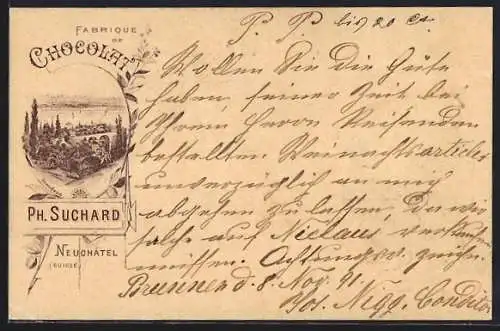 FABRIQUE
DE
CHOCOLAT
PH. SUCHARD
NEUCHÂTEL
(SUISSE)
P. P. bis 20 ct.
Wollen Sie die Güte
haben, seiner Zeit bei
Ihrem Herrn Reisenden
bestellten Weinachtsarticles
unverzüglich an mich
abgehen zu lassen, da wir
solche auf Niclaus
müssen. Achtungsv. zeichn.
Brunnen d. 8. Nov. 91.
Jos. Nigg, Conditor